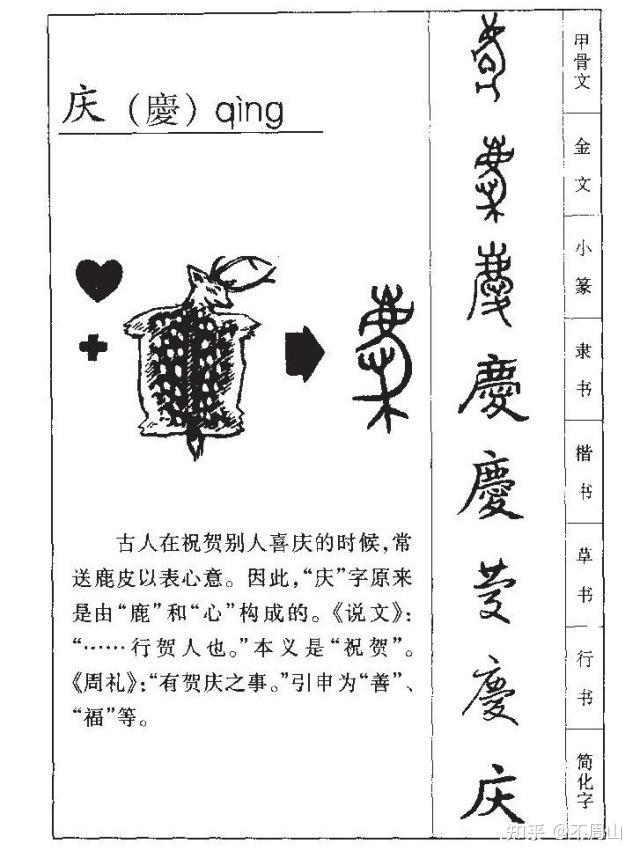 庆（慶）qìng
古人在祝贺别人喜庆的时候，常
送鹿皮以表心意。因此，“庆”字原来
是由“鹿”和“心”构成的。《说文》：
“……行贺人也。”本义是“祝贺”。
《周礼》：“有贺庆之事。”引申为“善”、
“福”等。
甲骨文
金文
小篆
慶 隶书
慶 楷书
草书
慶 行书
庆 简化字
知乎 @不周山